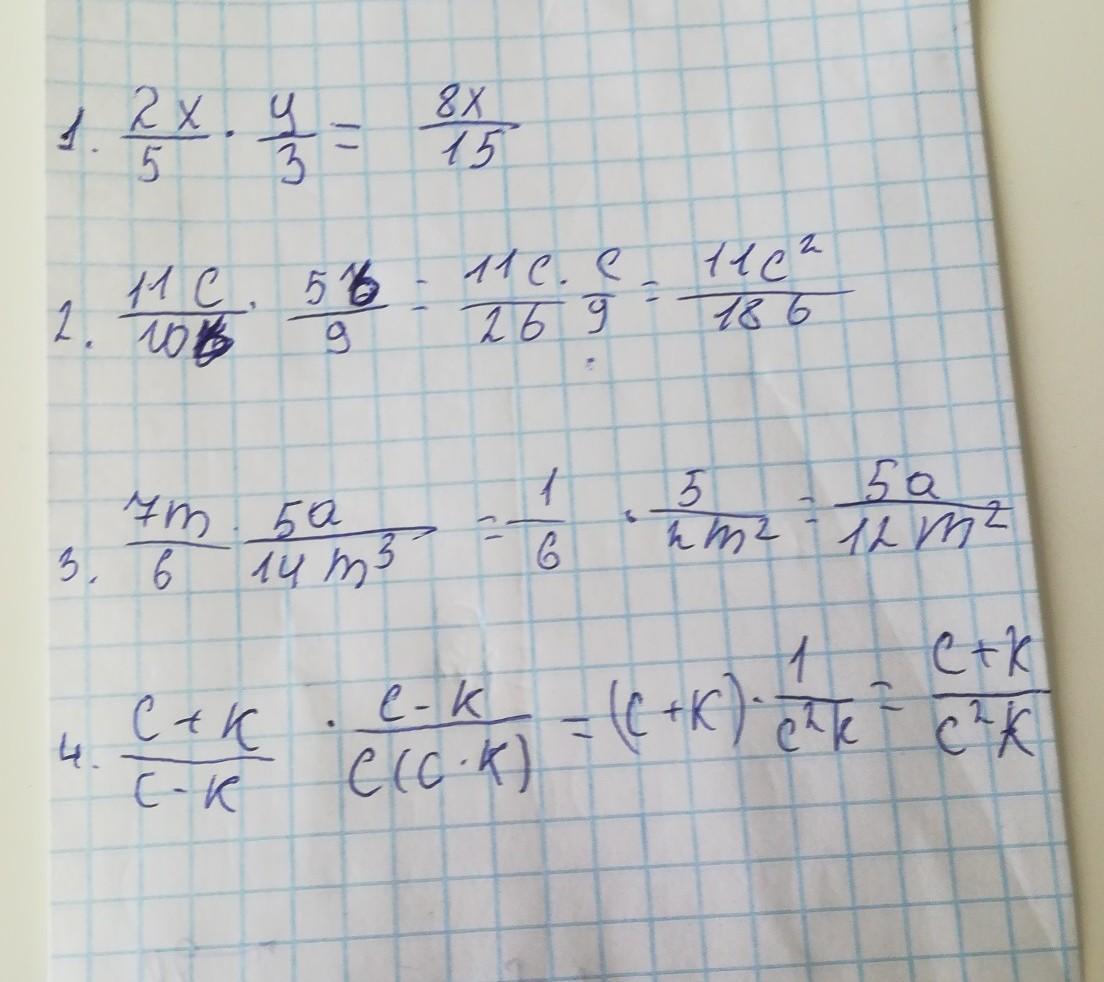 1. 2x/5 · 4/3 = 8x/15
2. 11c/10b · 5b/9 = 11c/2b · c/9 = 11c²/18b
3. 7m/6 · 5a/14m³ = 1/6 · 5/2m² = 5a/12m²
4. c+k/c-k · c-k/c(c·k) = (c+k) · 1/c²k = c+k/c²k